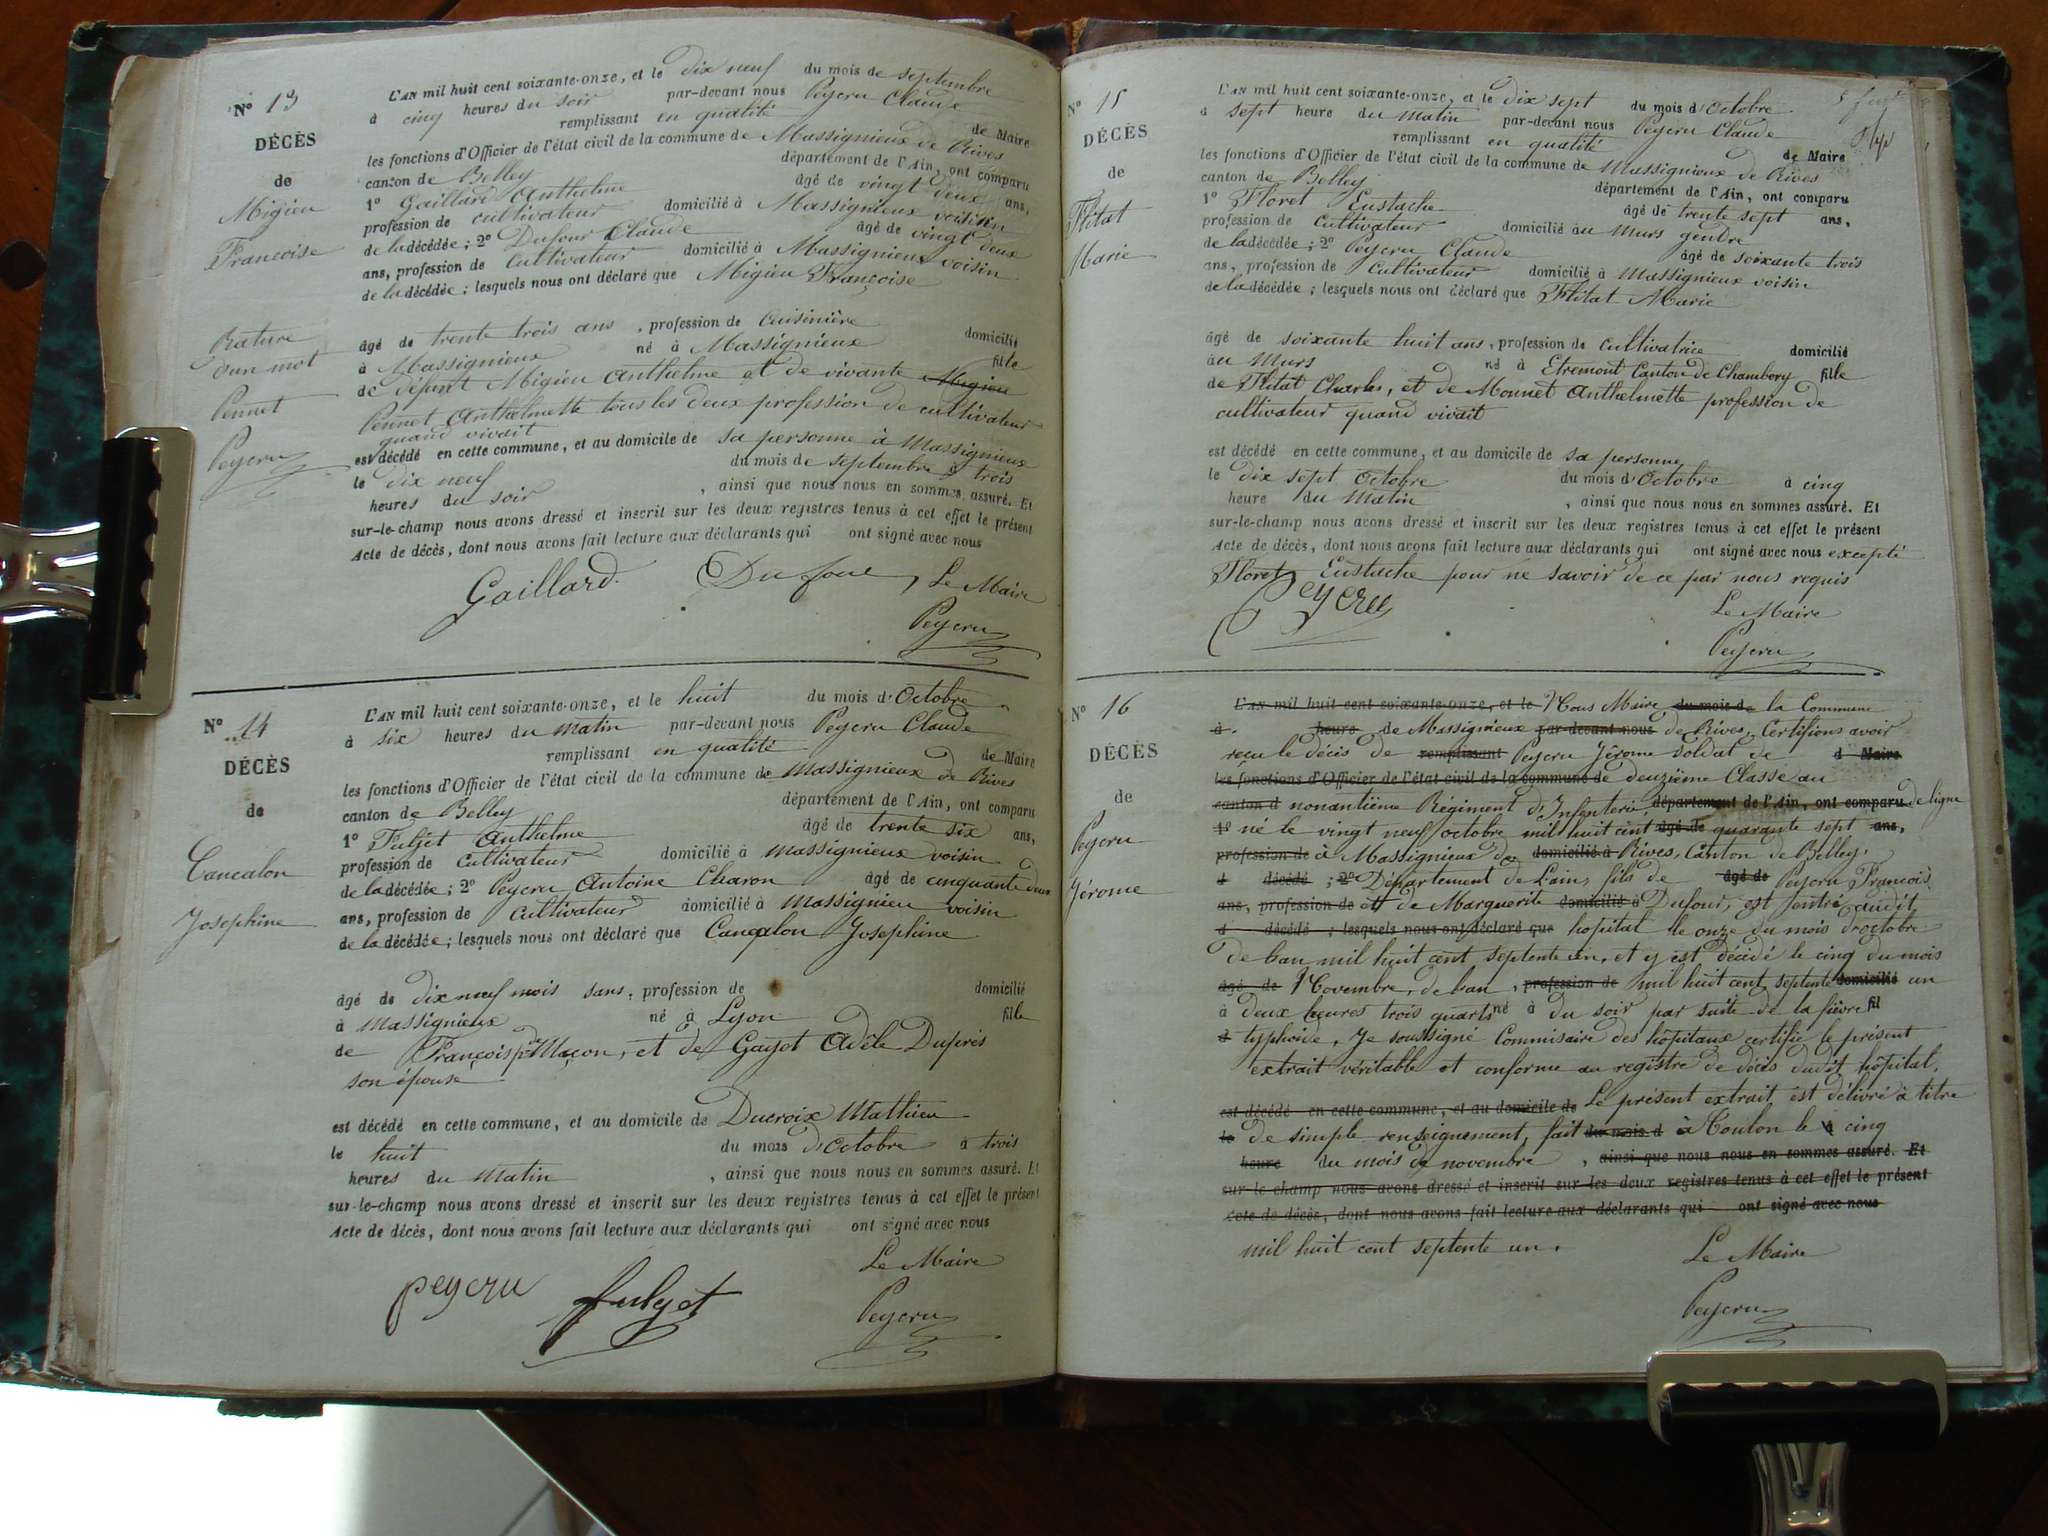 Nº 13
DÉCÈS
de
Migieu
Françoise
Rature
d'un mot
Pennet
Peycru
L'AN mil huit cent soixante-onze, et le dix neuf du mois de septembre
à cinq heures du soir par-devant nous Peycru Claude
remplissant en qualité de Maire
les fonctions d'Officier de l'état civil de la commune de Massignieux de Rives
canton de Belley département de l'Ain, ont comparu
1º Gaillard Anthelme âgé de vingt deux ans,
profession de cultivateur domicilié à Massignieux voisin
de la décédée; 2º Dufour Claude âgé de vingt deux
ans, profession de Cultivateur domicilié à Massignieux voisin
de la décédée; lesquels nous ont déclaré que Migieu Françoise
âgé de trente trois ans, profession de Cuisinière domicilié
à Massignieux né à Massignieux fille
de défunt Migieu Anthelme et de vivante Migieu
Pennet Anthelmette tous les deux profession de cultivateur
quand vivait
est décédé en cette commune, et au domicile de sa personne à Massignieux
le dix neuf du mois de septembre à trois
heures du soir, ainsi que nous nous en sommes assuré. Et
sur-le-champ nous avons dressé et inscrit sur les deux registres tenus à cet effet le présent
Acte de décès, dont nous avons fait lecture aux déclarants qui ont signé avec nous
Gaillard Dufour, Le Maire
Peycru
Nº 14
DÉCÈS
de
Cancalon
Josephine
L'AN mil huit cent soixante-onze, et le huit du mois d'Octobre
à six heures du matin par-devant nous Peycru Claude
remplissant en qualité de Maire
les fonctions d'Officier de l'état civil de la commune de Massignieux de Rives
canton de Belley département de l'Ain, ont comparu
1º Fuljet Anthelme âgé de trente six ans,
profession de Cultivateur domicilié à Massignieux voisin
de la décédée; 2º Peycru Antoine Charon âgé de cinquante deux
ans, profession de Cultivateur domicilié à Massignieu voisin
de la décédée; lesquels nous ont déclaré que Cancalon Josephine
âgé de dix neuf mois sans, profession de domicilié
à Massignieux né à Lyon fille
de François Maçon, et de Gayet Adèle Duprés
son épouse
est décédé en cette commune, et au domicile de Ducroix Mathieu
le huit du mois d'Octobre à trois
heures du Matin, ainsi que nous nous en sommes assuré. Et
sur-le-champ nous avons dressé et inscrit sur les deux registres tenus à cet effet le présent
Acte de décès, dont nous avons fait lecture aux déclarants qui ont signé avec nous
Le Maire
peycru fulget Peycru
Nº 15
DÉCÈS
de
Flitat
Marie
L'AN mil huit cent soixante-onze, et le dix sept du mois d'Octobre
à sept heure du Matin par-devant nous Peycru Claude
remplissant en qualité de Maire
les fonctions d'Officier de l'état civil de la commune de Massignieux de Rives
canton de Belley département de l'Ain, ont comparu
1º Floret Eustache âgé de trente sept ans,
profession de Cultivateur domicilié au Murs gendre
de la décédée; 2º Peycru Claude âgé de soixante trois
ans, profession de Cultivateur domicilié à Massignieux voisin
de la décédée; lesquels nous ont déclaré que Flitat Marie
âgé de soixante huit ans, profession de Cultivatrice domicilié
au Murs né à Etremont Canton de Chambery fille
de Flitat Charles, et de Monnet Anthelmette profession de
cultivateur quand vivait
est décédé en cette commune, et au domicile de sa personne
le dix sept Octobre du mois d'Octobre à cinq
heure du Matin, ainsi que nous nous en sommes assuré. Et
sur-le-champ nous avons dressé et inscrit sur les deux registres tenus à cet effet le présent
Acte de décès, dont nous avons fait lecture aux déclarants qui ont signé avec nous excepté
Floret Eustache pour ne savoir de ce par nous requis
Peycru Le Maire
Peycru
Nº 16
DÉCÈS
de
Peycru
Jérome
L'AN mil huit cent soixante-onze, et le Nous Maire du mois de la Commune
à heure de Massignieux par-devant nous de Rives, Certifions avoir
reçu le décès de remplissant Peycru Jérome Soldat de d Maire
les fonctions d'Officier de l'état civil de la commune de deuxième Classe au
canton d nonantième Régiment d'Infenterie département de l'Ain, ont comparu de ligne
1º né le vingt neuf octobre mil huit cent âgé de quarante sept ans,
profession de à Massignieux de domicilié à Rives, Canton de Belley,
d décédé; 2º Département de L'ain, fils de âgé de Peycru François
ans, profession de et de Marguerite domicilié à Dufour, est entré audit
d décédé; lesquels nous ont déclaré que hopital le onze du mois d'octobre
de l'an mil huit cent septente un, et y est décédé le cinq du mois
âgé de Novembre, de l'an, profession de mil huit cent septente domicilié un
à deux heures trois quarts né à du soir par suite de la fièvre fil
d typhoide, Je soussigné Commisaire des hôpitaux certifie le présent
extrait véritable et conforme au registre de décès dudit hôpital,
est décédé en cette commune, et au domicile de Le présent extrait est délivré à titre
le de simple renseignement, fait du mois d à Toulon le à cinq
heure du mois de novembre, ainsi que nous nous en sommes assuré. Et
sur-le-champ nous avons dressé et inscrit sur les deux registres tenus à cet effet le présent
Acte de décès, dont nous avons fait lecture aux déclarants qui ont signé avec nous
mil huit cent septente un. Le Maire
Peycru